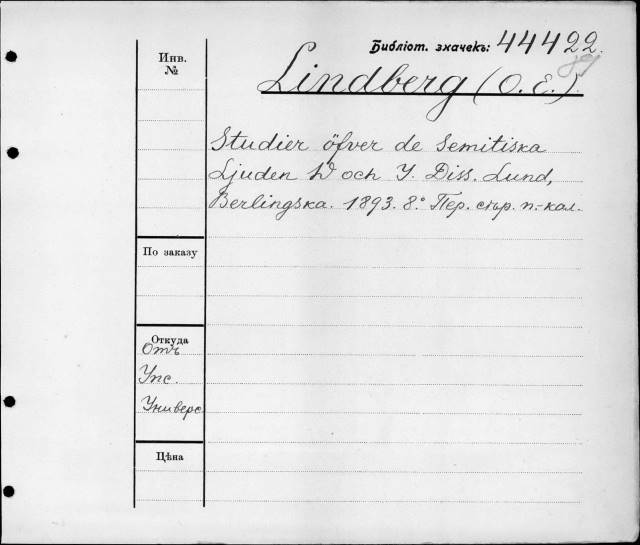 Библіот. значекъ: 44422.
Инв.
№
Lindberg (O.E.)
Studier öfver de Semitiska
Ljuden W och Y. Diss. Lund,
Berlingska. 1893. 8.º Пер. стр. п.-кал.
По заказу
Откуда
Отъ
Упс.
Универс
Цѣна